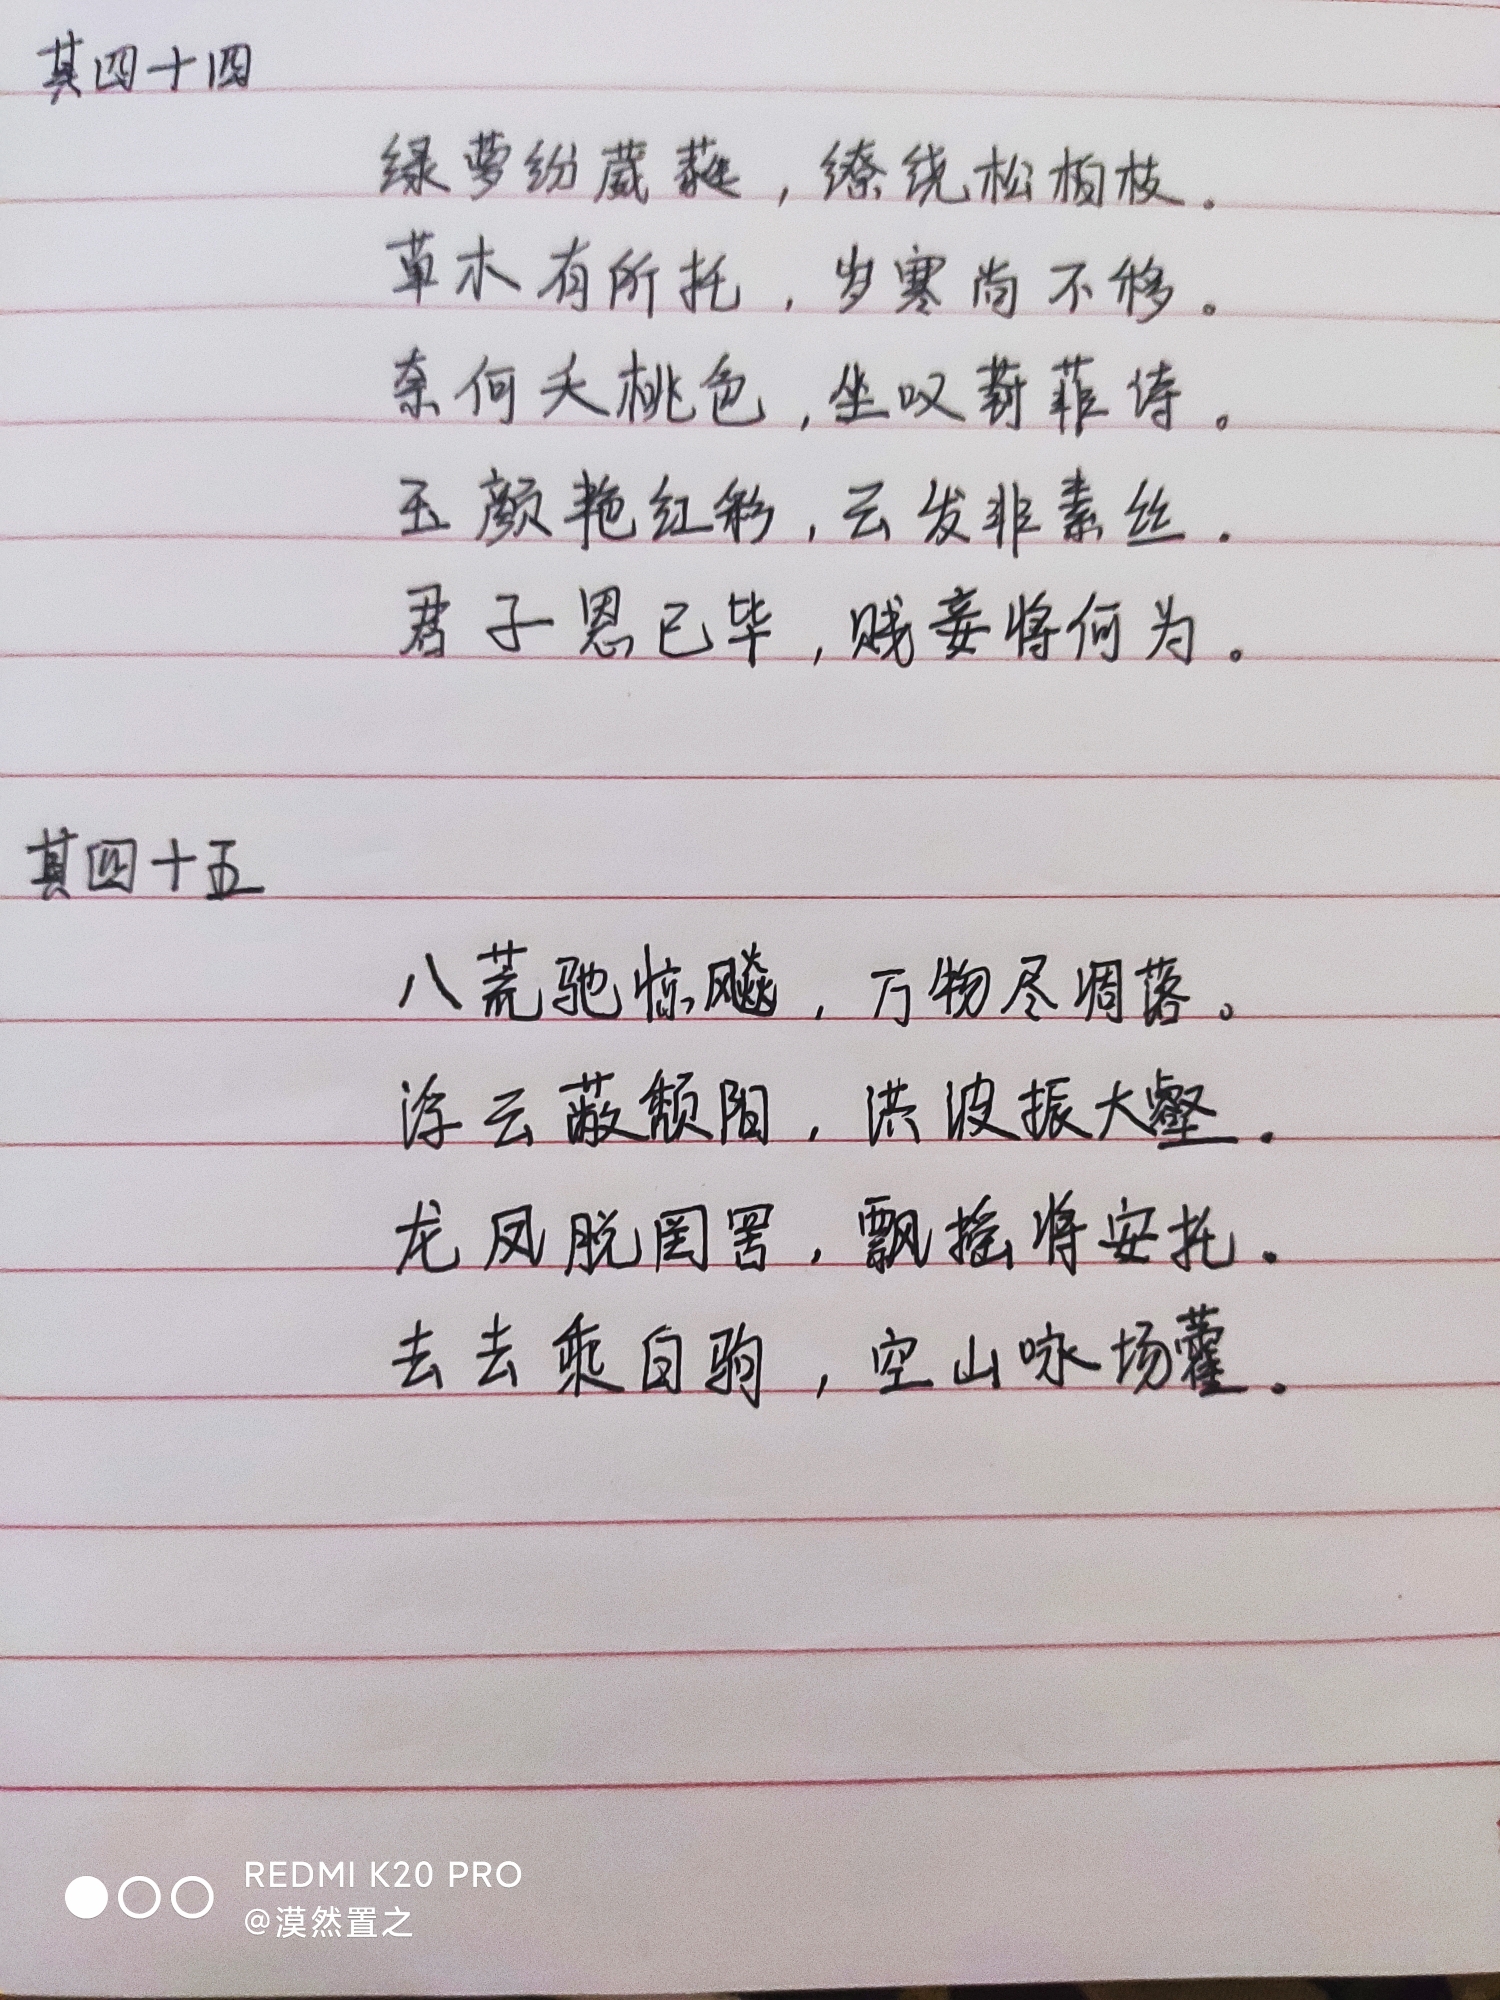 其四十四
绿萝纷葳蕤，缭绕松柏枝。
草木有所托，岁寒尚不移。
奈何夭桃色，坐叹葑菲诗。
玉颜艳红彩，云发非素丝。
君子恩已毕，贱妾将何为。
其四十五
八荒驰惊飚，万物尽凋落。
浮云蔽颓阳，洪波振大壑。
龙凤脱罔罟，飘摇将安托。
去去乘白驹，空山咏场藿。
REDMI K20 PRO
@漠然置之